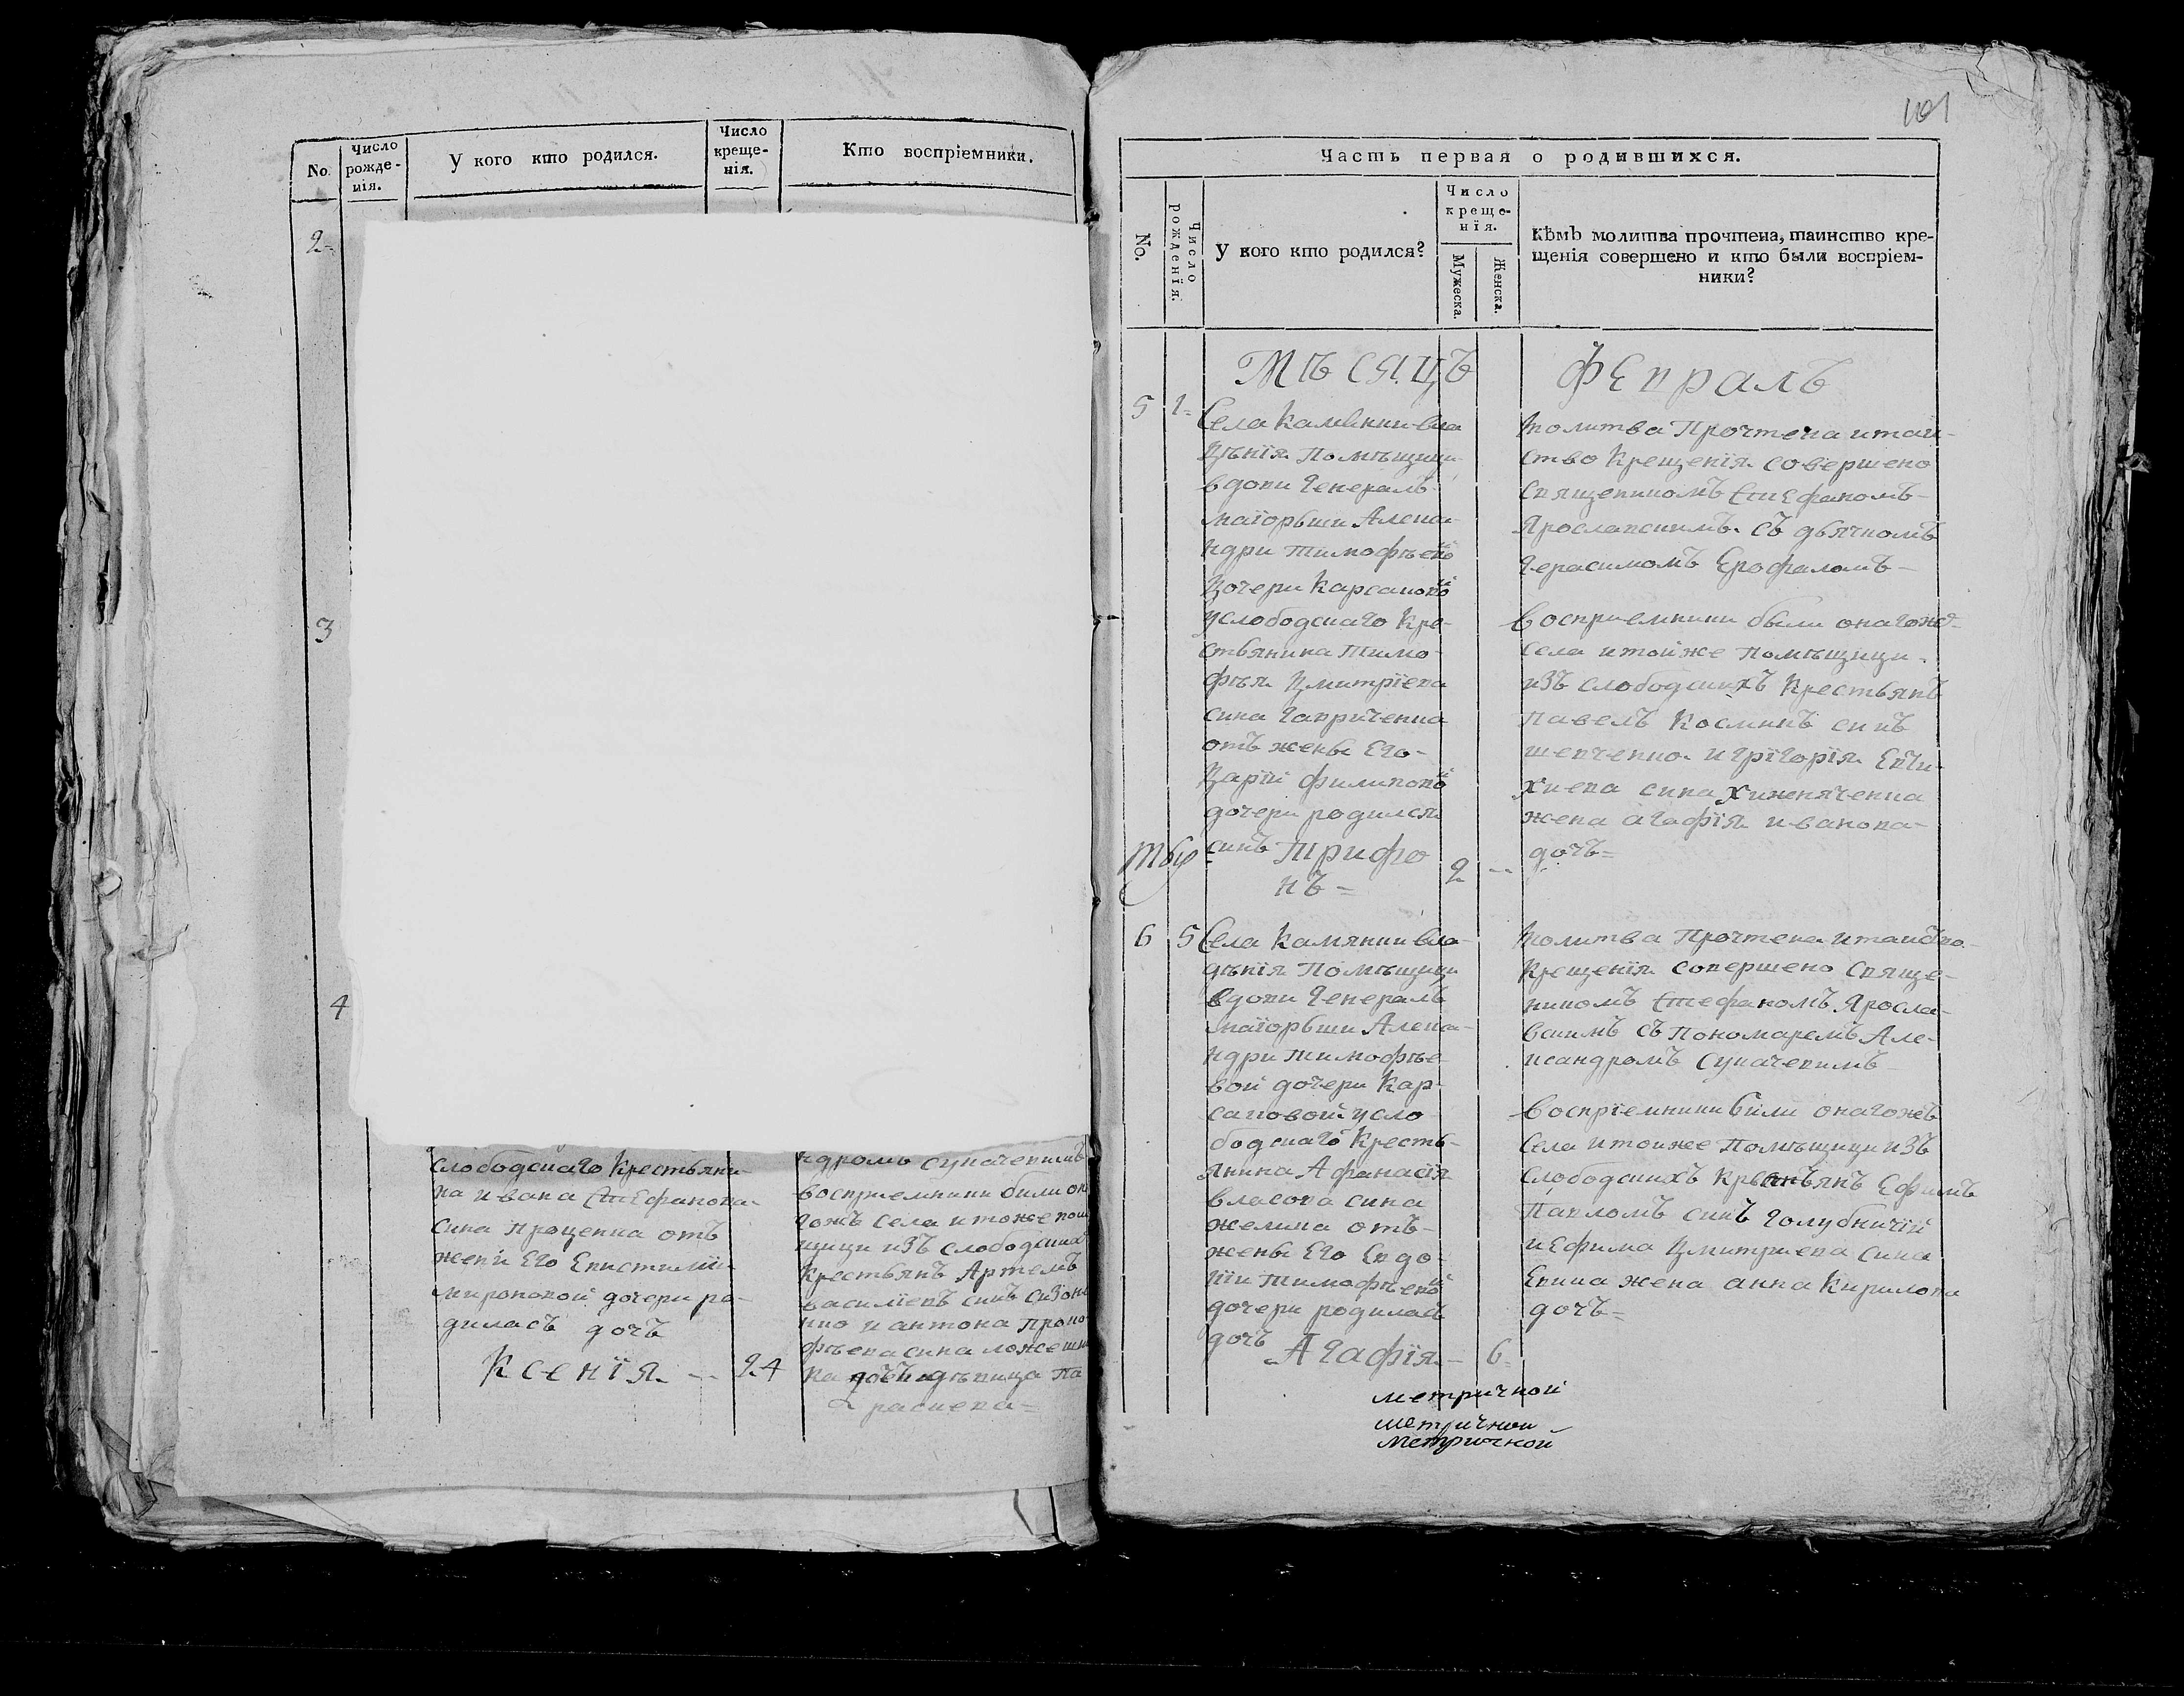 No.
Число рожде-
нія.
У кого кто родился.
Число
креще-
нія.
Кто воспріемники.
2
3
4
слободскаго крестьяни-
на ивана Стефанова
сина проценка отъ
жени Его Епистиміи
мироновой дочери ро-
дилась дочъ
Ксенія
24
ндромъ Сукачевимъ
воспріемники били он
гожъ Села итоже пом
щици изъ слободских
крестьянъ Артемъ
василіевъ синъ Сизоне
нко и антона Проко
фѣева сина
на дочъ дѣвица Па
раскева
101
Часть первая о родившихся.
No.
Число
рожденія.
У кого кто родился?
Число
креще-
нія.
Мужеска.
Женска.
Кѣмъ молитва прочтена, таинство кре-
щенія совершено и кто были воспріем-
ники?
Мѣсяцъ Февралъ
5
1
Села Камянки вла
дѣнія Помѣщици
вдови Генералъ
маіорьши Алекса
ндри тимофѣевой
дочери Карсаковой
услободскаго Кре-
стьянина Тимо-
фѣя Дмитріева
сина Гавриченка
отъ жены Его
Даріи филиповой
дочери родился
синъ Трифо
нъ
2
Молитва Прочтена итаи-
ство Крещенія совершено
Священикомъ Стефаномъ
Ярославскимъ съ дьячкомъ
Герасимомъ Ерофаломъ
Воспріемники были онагожъ
села итойже помѣщици
изъ слободскихъ Крестьянъ
Павелъ Косминъ синъ
шевченко и грігорія Евти-
хиева сина Хижняченка
жена агафія иванова
дочъ
6
5
Села Камянки вла-
дѣнія Помѣщици
вдови Генералъ
маіорьши Алекса-
ндри тимофѣе
вой дочери Кар-
саковой усло
бодскаго Кресть-
янина Афанасія
власова сина
желика отъ
жены Его Евдо-
кіи тимофѣевой
дочери родилась
дочъ Агафія
6
Молитва Прочтена итаиство
Крещенія совершено Свяще-
никомъ Стефаномъ Яросла-
вскимъ съ пономаремъ Але-
ксандромъ Сукачевимъ
Воспріемники били онагожъ
села итоиже помѣщици изъ
слободскихъ Крестьянъ Ефимъ
Павломъ синъ голубничій
и Ефима Дмитриева сина
жена анна Кирилова
дочъ
метричной
метричной
Метричной